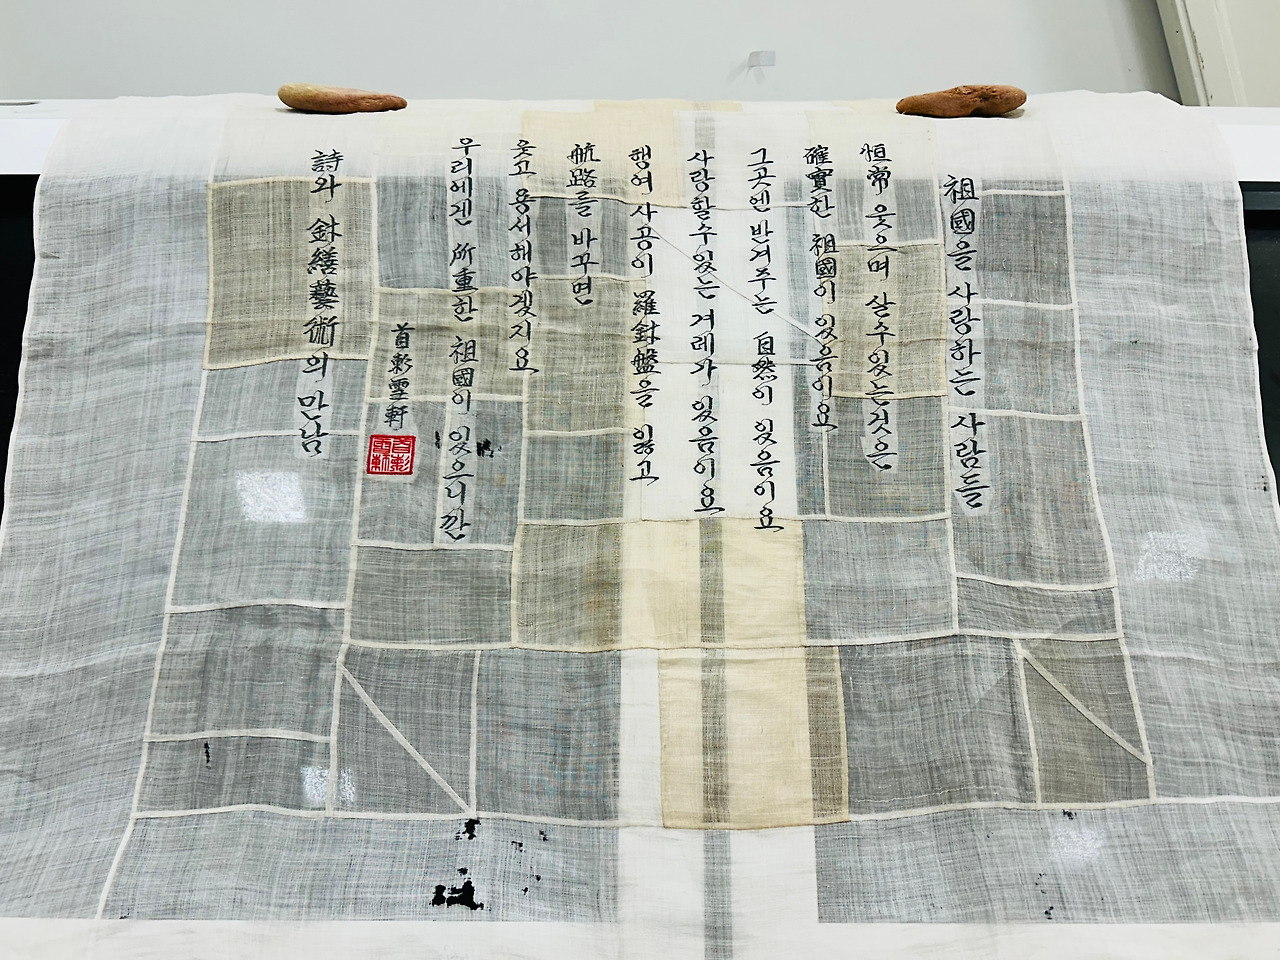 祖國을 사랑하는 사람들
恒常 웃으며 살수있는것은
確實한 祖國이 있음이요
그곳엔 반겨주는 自然이 있음이요
사랑할수있는 겨레가 있음이요
행여 사공이 羅針盤을 잃고
航路를 바꾸면
웃고 용서해야겠지요
우리에겐 所重한 祖國이 있으니깐
首彰雪軒
詩와 針繕藝術의 만남